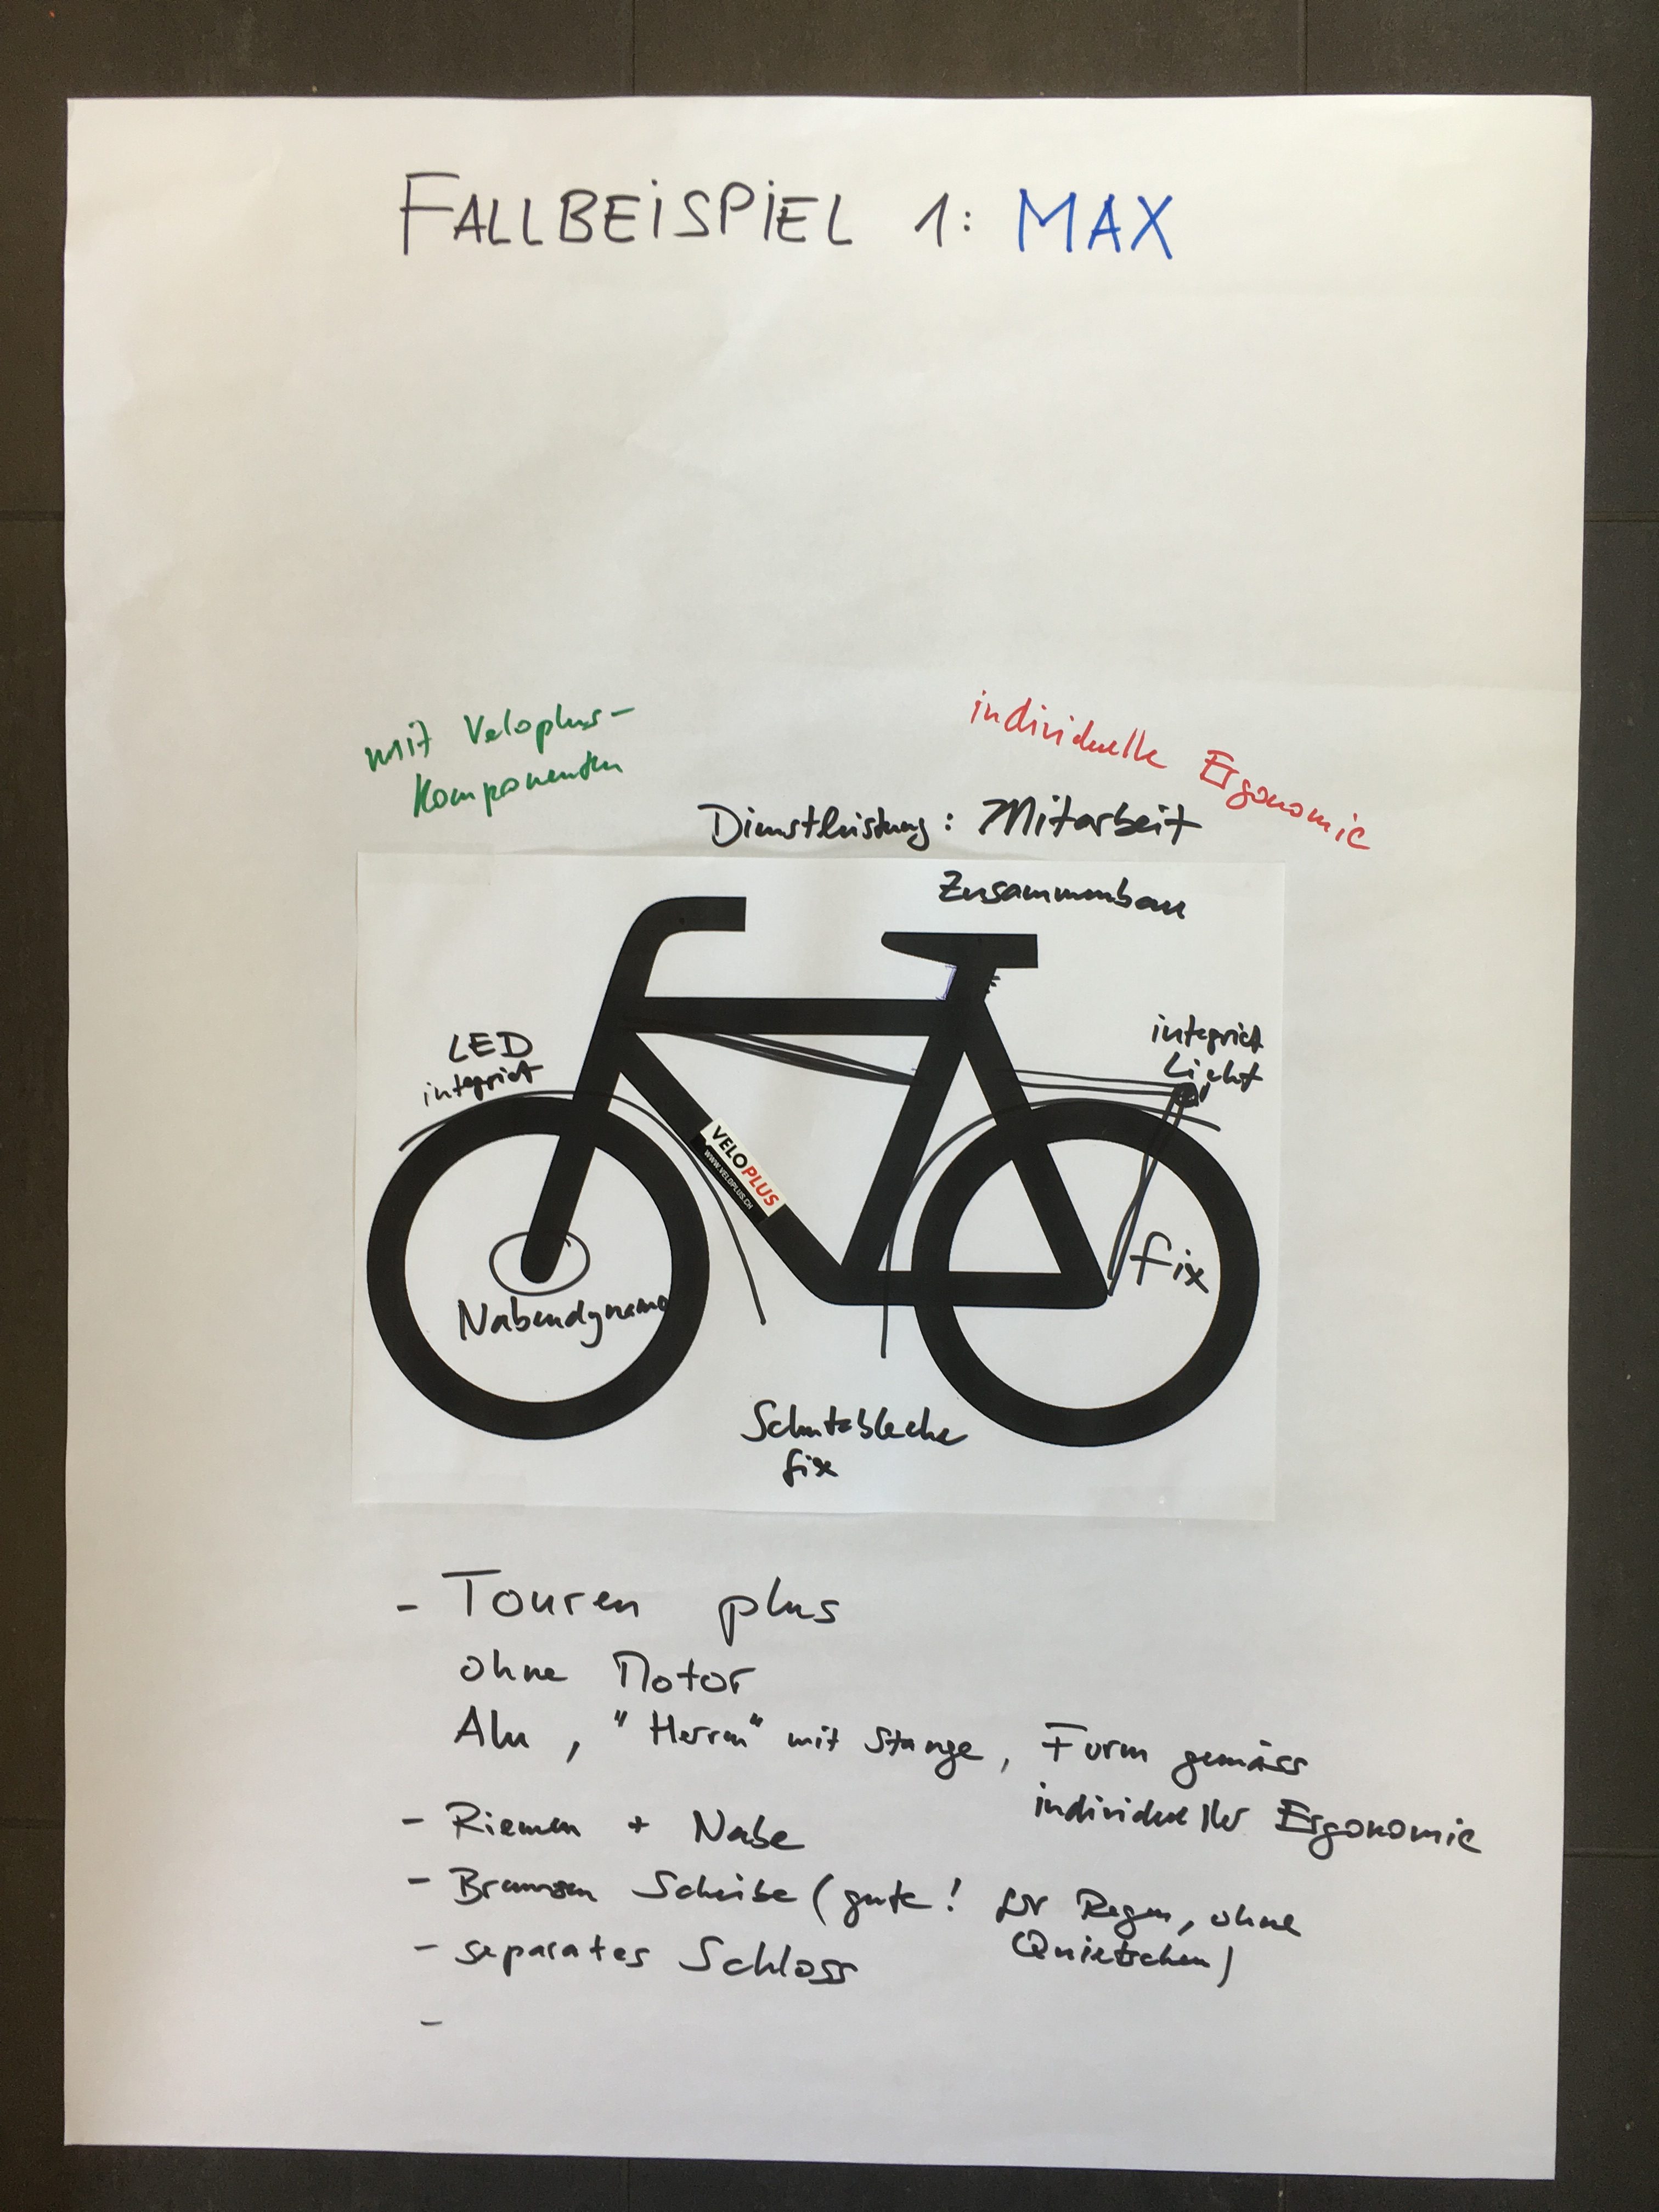 FALLBEISPIEL 1: MAX
mit Veloplus-
Komponenten
individuelle Ergonomie
Dienstleistung: Mitarbeit
Zusammenbau
LED
integriert
integriert
Licht
VELOPLUS
WWW.VELOPLUS.CH
fix
Nabendynamo
Schutzbleche
fix
- Touren plus
ohne Motor
Alu, "Herren" mit Stange, Form gemäss
individueller Ergonomie
- Riemen + Nabe
- Bremsen Scheibe (gute! für Regen, ohne
Quietschen)
- separates Schloss
-